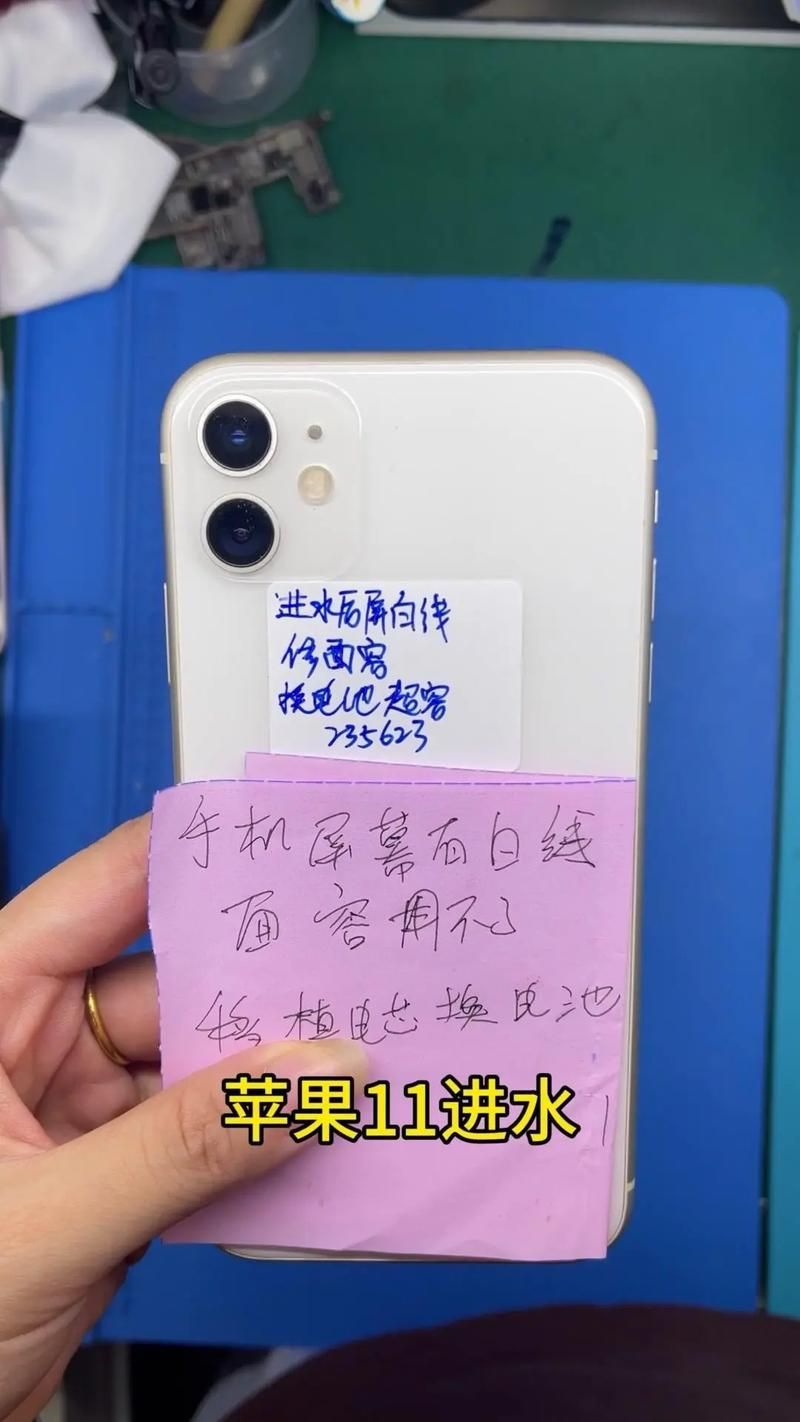 进水后屏白线
修面容
换电池超容
235623
手机屏幕有白线
面容用不了
移植电芯换电池
苹果11进水